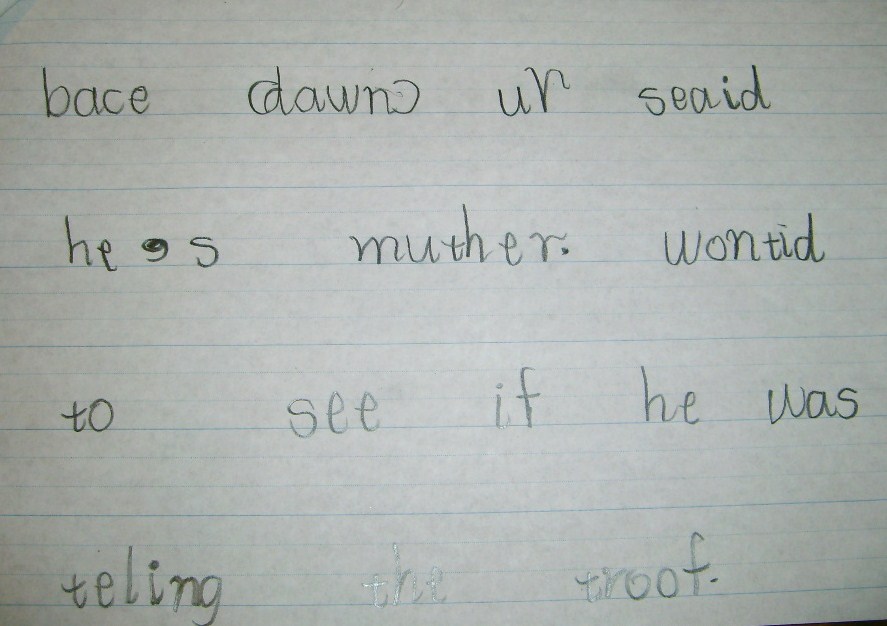 bace (dawn) un seaid
he's muther. wontid
to see if he was
teling the troof.